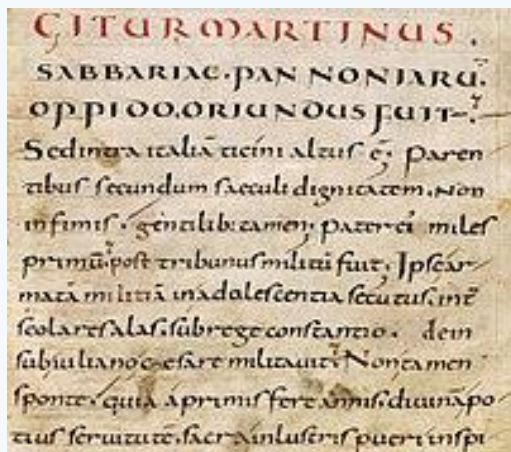 GITUR MARTINUS.
SABBARIAE. PANNONIARŪ.
OPPIDO. ORIUNDUS FUIT.
Sed intra italiā ticini altus ē. Paren
tibus secundum saeculi dignitatem. Non
infimis. gentilib; tamen; Pater ei miles
primū. post tribunus militū fuit. Ipse ar
matā militiā in adolescentia secutus. int
scolares alas. sub rege constantio. dein
sub iuliano cęsare militavit; Non tamen
sponte. quia a primis fere annis. divinā po
tius servitutē. sacra inlustris pueri inspi